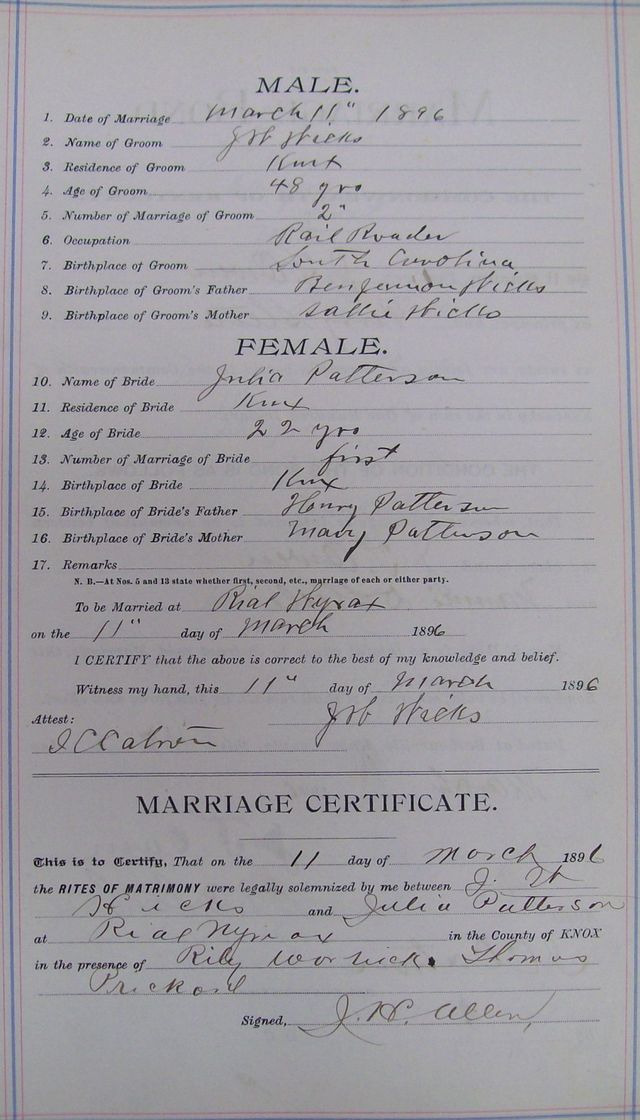 MALE.
1. Date of Marriage March 11" 1896
2. Name of Groom Hicks
3. Residence of Groom Knox
4. Age of Groom 48 yrs
5. Number of Marriage of Groom 2"
6. Occupation Rail Roader
7. Birthplace of Groom South Carolina
8. Birthplace of Groom's Father Benjamon Hicks
9. Birthplace of Groom's Mother Sallie Hicks
FEMALE.
10. Name of Bride Julia Patterson
11. Residence of Bride Knx
12. Age of Bride 22 yrs
13. Number of Marriage of Bride first
14. Birthplace of Bride Knx
15. Birthplace of Bride's Father Henry Patterson
16. Birthplace of Bride's Mother Mary Patterson
17. Remarks
N. B.—At Nos. 5 and 13 state whether first, second, etc., marriage of each or either party.
To be Married at Rial
on the 11" day of March 1896
I CERTIFY that the above is correct to the best of my knowledge and belief.
Witness my hand, this 11" day of March 1896
Attest: Hicks
MARRIAGE CERTIFICATE.
This is to Certify, That on the 11 day of March 1896
the RITES OF MATRIMONY were legally solemnized by me between J.
Hicks and Julia Patterson
at Rial in the County of KNOX
in the presence of Thomas
Signed, J. W. Allen